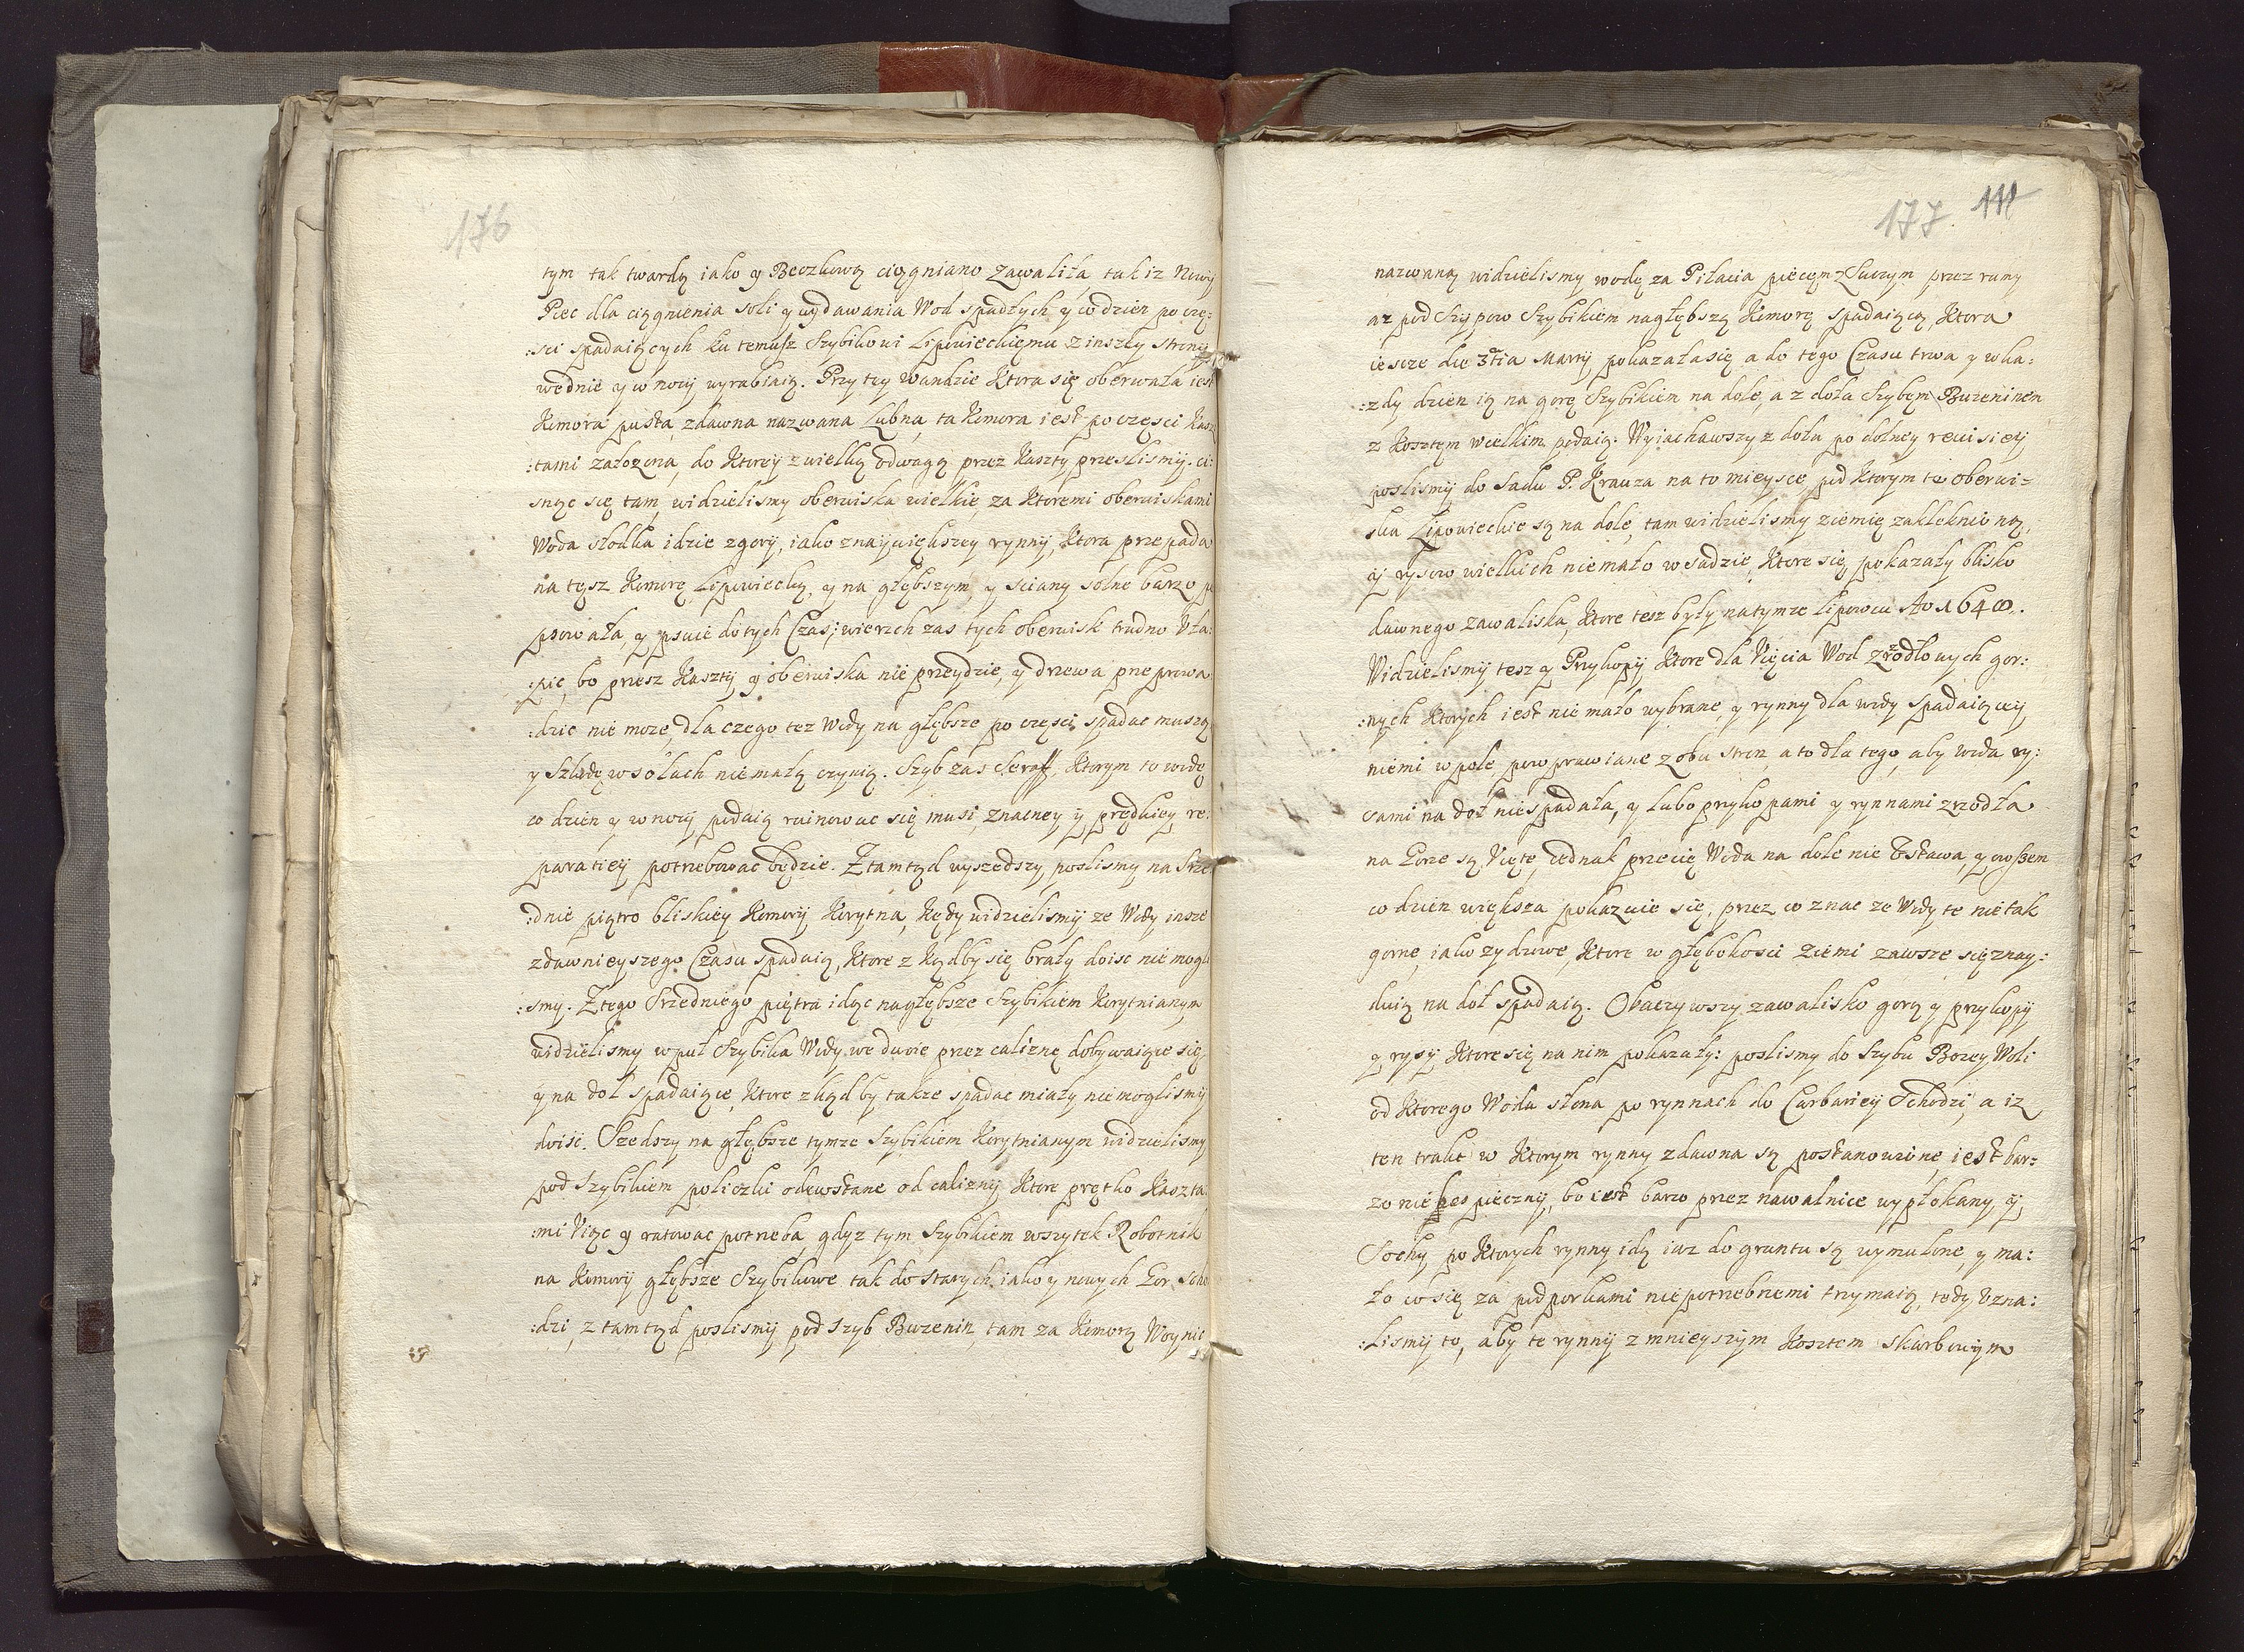 176
tym tak twardą iako y Beczkową ciągniano zawaliła, tak iz Nowy
Piec dla ciągnienia soli y wydawania Wod spadłych, y co dzien po czę:
:sci spadaiących ku temusz Szybikowi Lipowieckiemu z inszey strony
we dnie y w nocy wyrabiaią. Przy tey wandzie ktora się oberwała iest
Komora pusta, zdawna nazwana Lubna, ta Komora iest po częsci Kasz
:tami załozona, do Ktorey z wielką odwagą przez Kaszty przeslismÿ. ci:
snąc się tam, widzielismy oberwiska wielkie, za Ktoremi oberwiskami
Woda słodka idzie z gory, iako z naywiększey rynny, Ktora przepada
na tęsz Komorę Lipowiecką, y na głębszym y sciany solne barzo po
psowała, y psuie do tych Czas; wierzch zas tych oberwisk trudno Uła:
:pic, bo przesz Kaszty y oberwiska nie przeydzie, y drzewa przeprowa
:dzic nie moze, dla czego tez Wody na głębsze po częsci spadac muszą
y Szkodę w solach nie małą czynią. Szyb zas Seraff, Ktorym to wodę
co dzien y w nocy podaią ruinowac się musi, znaczney y prędkiey re:
paratiey potrzebowac będzie. Z tamtąd wyszedszy poslismy na Srze
:dnie piątro bliskiey Komory Korytna, kędy widzielismÿ ze Wody insze
zdawnieyszego Czasu spadaią, Ktore z kądby się brały doisc nie mogli
:smy. Z tego Srzedniego piętra idąc na głębsze Szybikiem Korytnianym
widzielismy w puł Szybika Wody we dwoie przez caliznę dobywaiące się,
y na doł spadaiące, Ktore zkąd by takze spadac miały nie moglismy
doisc. Szedszy na głębsze tymze Szybikiem Korytnianym widzielismy
pod Szybikiem policzki odewstane od calizny, Ktore prętko Kaszta
:mi Uiąc y ratowac potrzeba, gdyz tym Szybikiem wszytek Robotnik
na Komory głębsze Szybikowe tak do starych, iako y nowych Gor, scho
:dzi, z tamtąd poslismÿ pod Szyb Buzenin, tam za Komorą Woynic
177 111
nazwaną widzielismy wodę za Piłacia piecem Zsuczym przez rumy
az pod Szypow Szybikiem na głębszą Komorę spadaiącą, Ktora
ieszcze die 3tia Martij pokazała się a do tego Czasu trwa y w ka:
:zdy dzien ią na gorę Szybikiem na dole, a z doła Szybem Buzeninem
z Kosztem wielkim podaią. Wyiachawszy z dołu po dolney rewisieÿ
poslismÿ do Sadu P. Krauza na to mieysce, pod Ktorym te oberwi=
ska Lipowieckie są na dole, tam widzielismy ziemię zaklęknioną,
ÿ rysow wielkich nie mało w sadzie, Ktore się pokazały blisko
dawnego zawaliska, Ktore tesz były na tymze Lipowcu Ao 1648.
Widzielismÿ tesz y Przykopÿ Ktore dla Uięcia Wod zrzodłowych gor:
:nych Ktorych iest nie mało wybrane, y rynny dla wody spadaiącey
niemi w pole, powprawiane z obu stron, a to dla tego, aby woda ry:
sami na doł nie spadała, y lubo przykopami y rynnami zrzodła
na Gorze są Uięte, iednak przecię Woda na dole nie Ustawa, y owszem
co dzien większa pokazuie się, przez co znac ze Wody te nie tak
gorne, iako zydzowe, Ktore w głębokosci Ziemi zawsze się znay:
duią na doł spadaią. Obaczywszy zawalisko gorą y przykopÿ
y rysÿ Ktore się na nim pokazały: poslismy do Szybu Bozey Woli
od Ktorego Woda słona po rynnach do Carbariey Schodzi, a iz
ten trakt w Ktorym rynny zdawna są postanowione, iest bar:
zo niebespiecznÿ, bo iest barzo przez nawalnice wypłokany, ÿ
Sochy, po Ktorych rynny idą iuz do gruntu są wymulone, y ma:
ło co się za podporkami niepotrzebnemi trzymaią, tedy Uzna:
:lismÿ to, aby te rynnÿ z mnieyszÿm Kosztem skarbowÿm